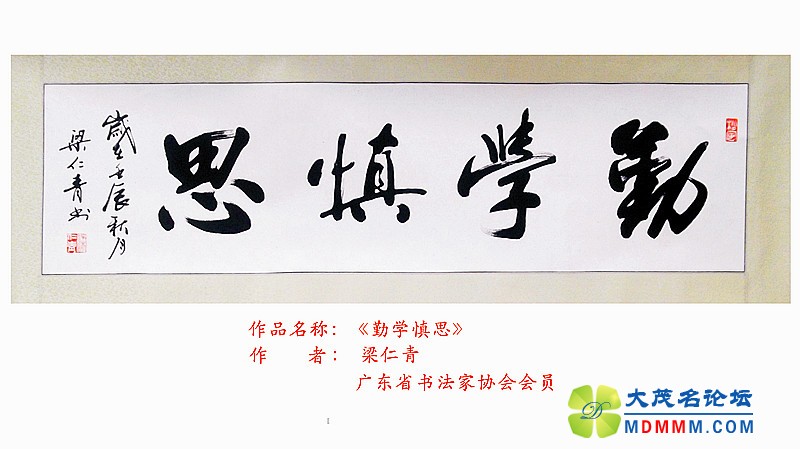 勤學慎思
歲在壬辰秋月
梁仁青书
作品名称：《勤学慎思》
作　　者：　梁仁青
广东省书法家协会会员
大茂名论坛
MDMMM.COM